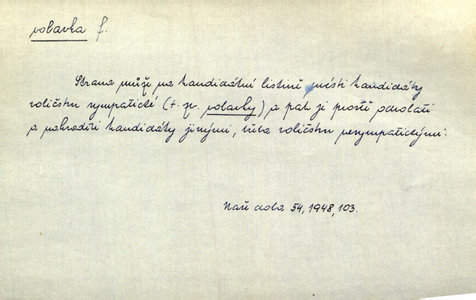 volavka f.
Strana může na kandidátní listině místi kandidáty
voličstvu sympatické (t. zv. volavky) a pak je prostě odvolati
a nahraditi kandidáty jinými, třeba voličstvu nesympatickými.
Naše doba 54, 1948, 103.